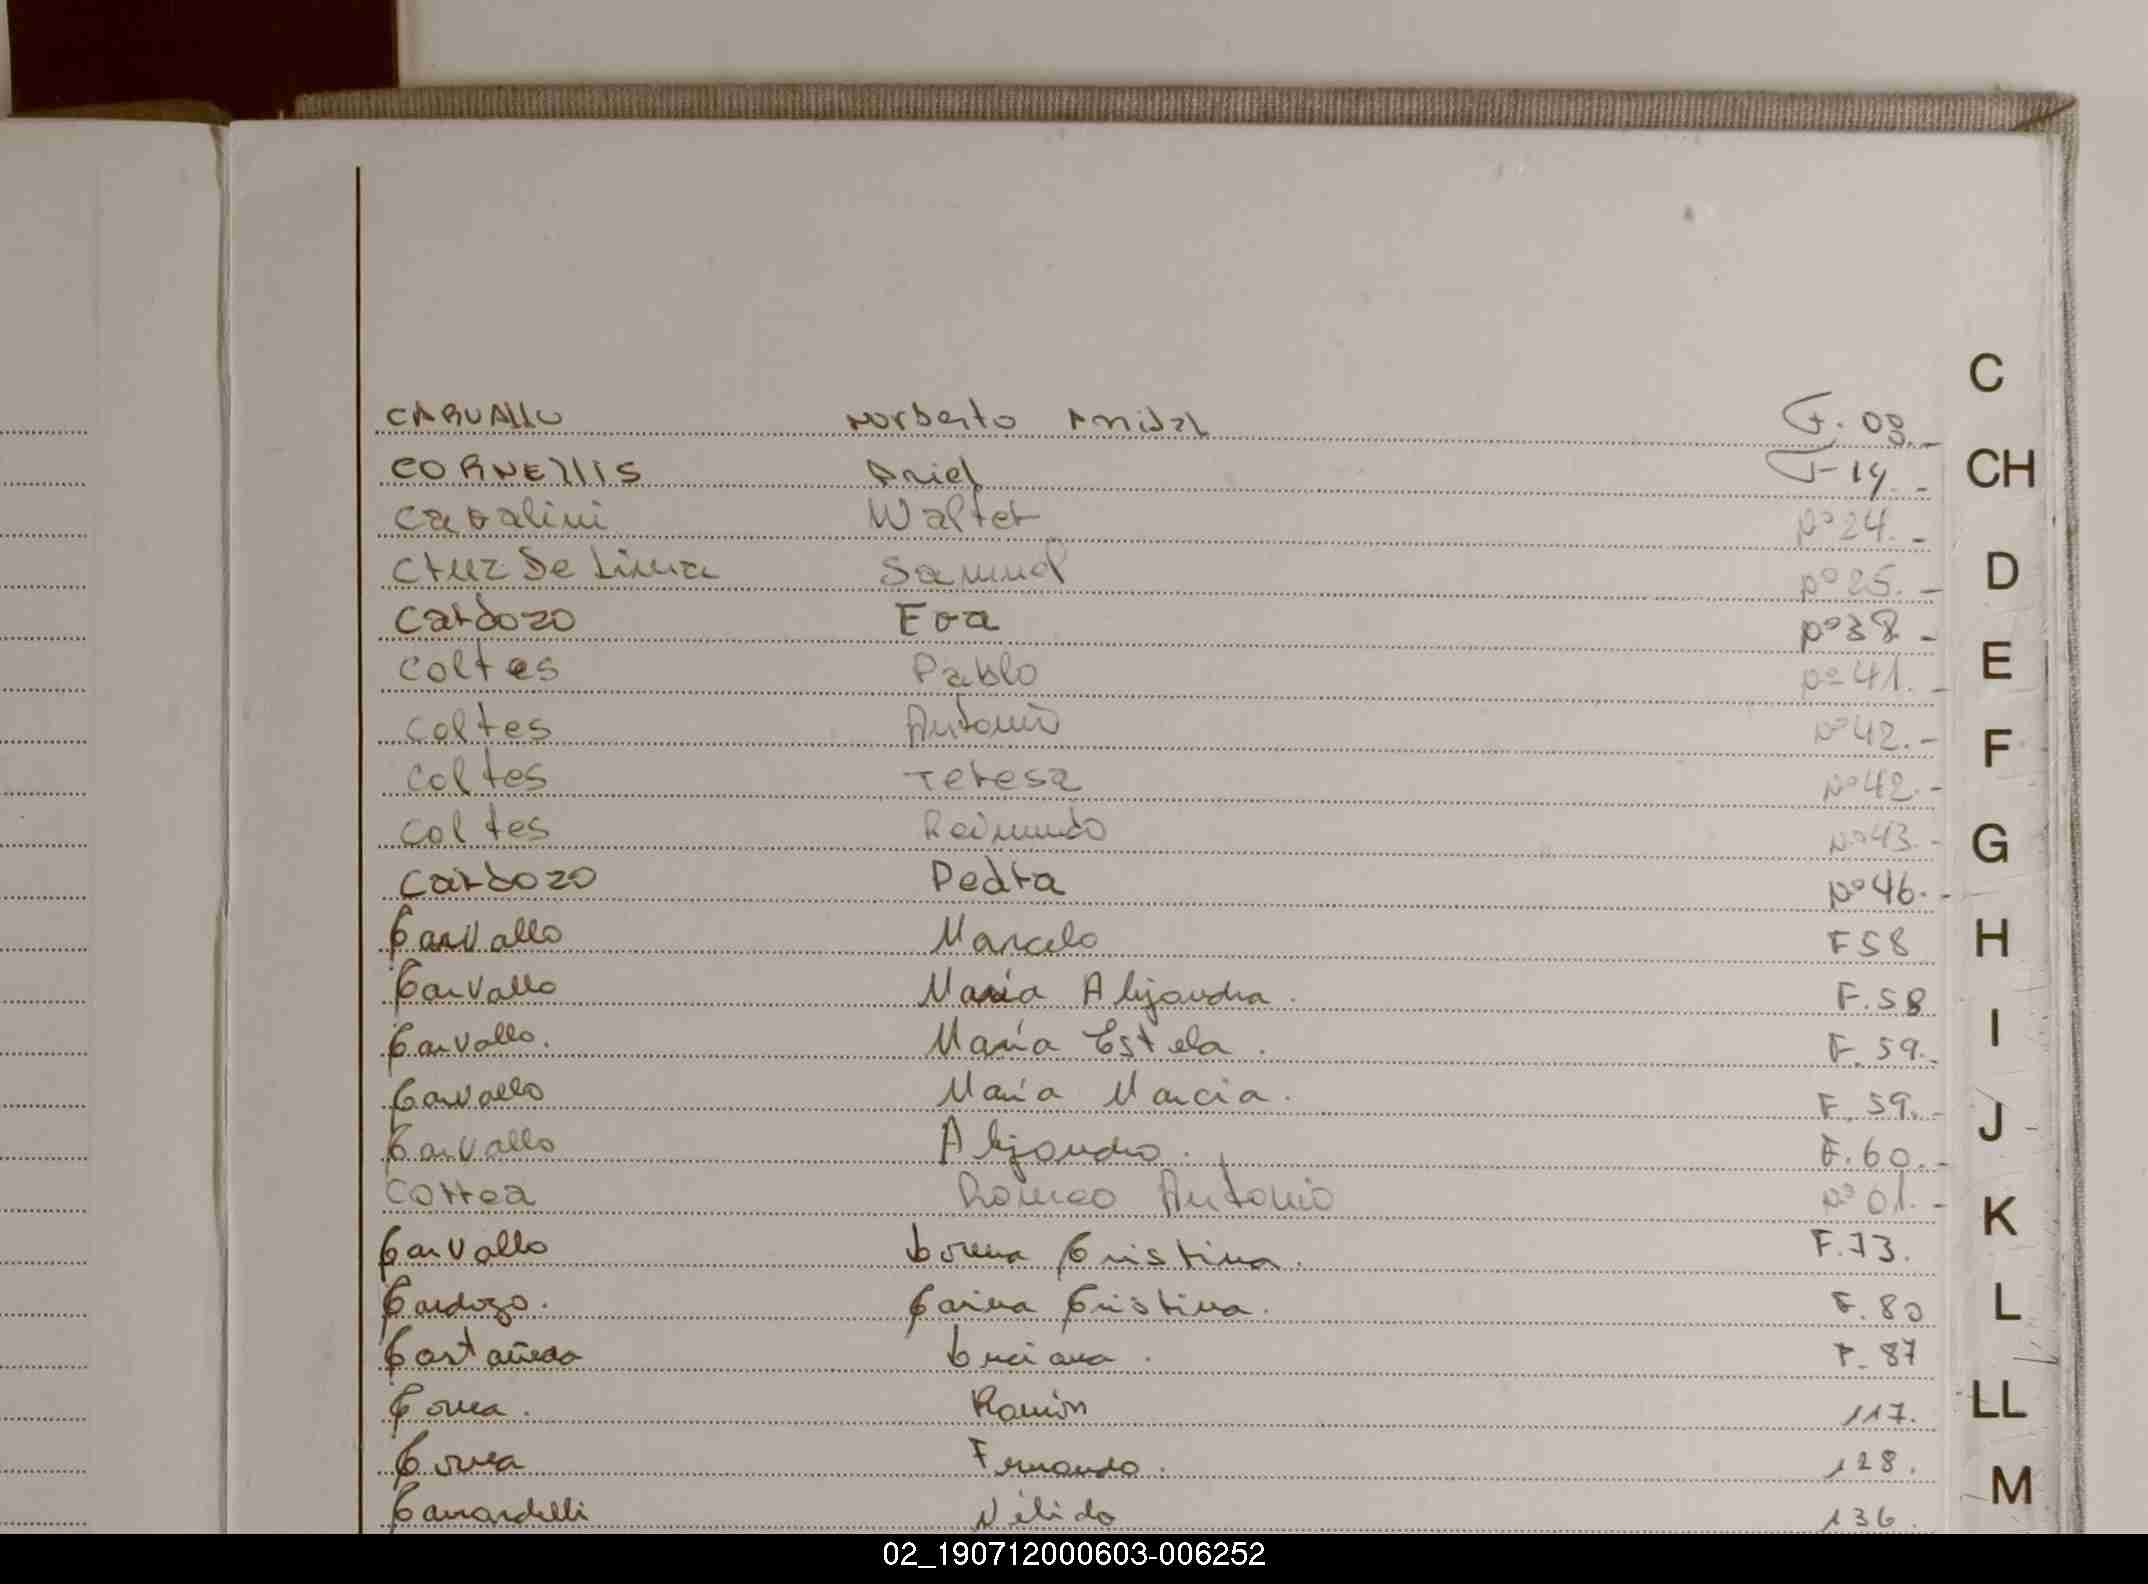 CARVALLO Norberto Anibal F. 08.-
CORNELLIS Ariel F-19.-
Cavalini Walter Nº 24.-
Cruz De Lima Samuel Nº 25.-
Cardozo Eva Nº 38.-
Coltes Pablo Nº 41.-
Coltes Antonio Nº 42.-
Coltes Teresa Nº 42.-
Coltes Raimundo Nº 43.-
Cardozo Pedra Nº 46.-
Carvallo Marcelo F 58
Carvallo María Alejandra. F. 58
Carvallo. María Estela. F. 59.-
Carvallo María Marcia. F. 59.-
Carvallo Alejandro. F. 60.-
Correa Romeo Antonio Nº 01.-
Carvallo Lorena Cristina. F. 73.
Cardozo. Carina Cristina. F. 80
Castañeda Luciana. F. 87
Correa. Ramón 117.
Correa Fernando. 128.
Nélida 136.
C
CH
D
E
F
G
H
I
J
K
L
LL
M
02_190712000603-006252